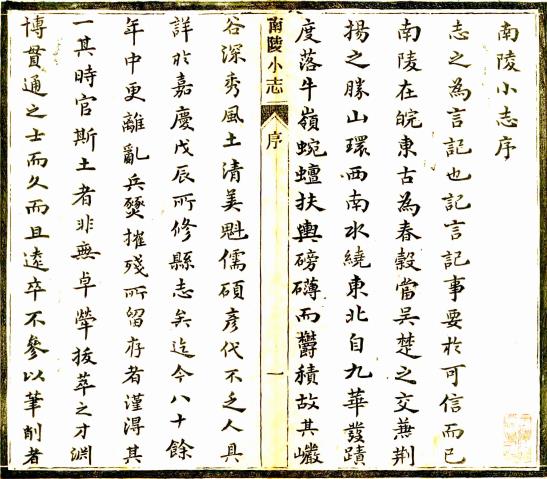 南陵小志序
志之為言記也記言記事要於可信而已
南陵在皖東古為春穀當吳楚之交蕪荆
揚之勝山環西南水繞東北自九華發蹟
度落牛嶺蜿蟺扶輿磅礴而鬱積故其巖
南陵小志
序
一
谷深秀風土清美魁儒碩彥代不乏人具
詳於嘉慶戊辰所修縣志矣迄今八十餘
年中更離亂兵燹摧殘所留存者謹得其
一其時官斯土者非無卓犖拔萃之才淵
博貫通之士而久而且遠卒不參以筆削者